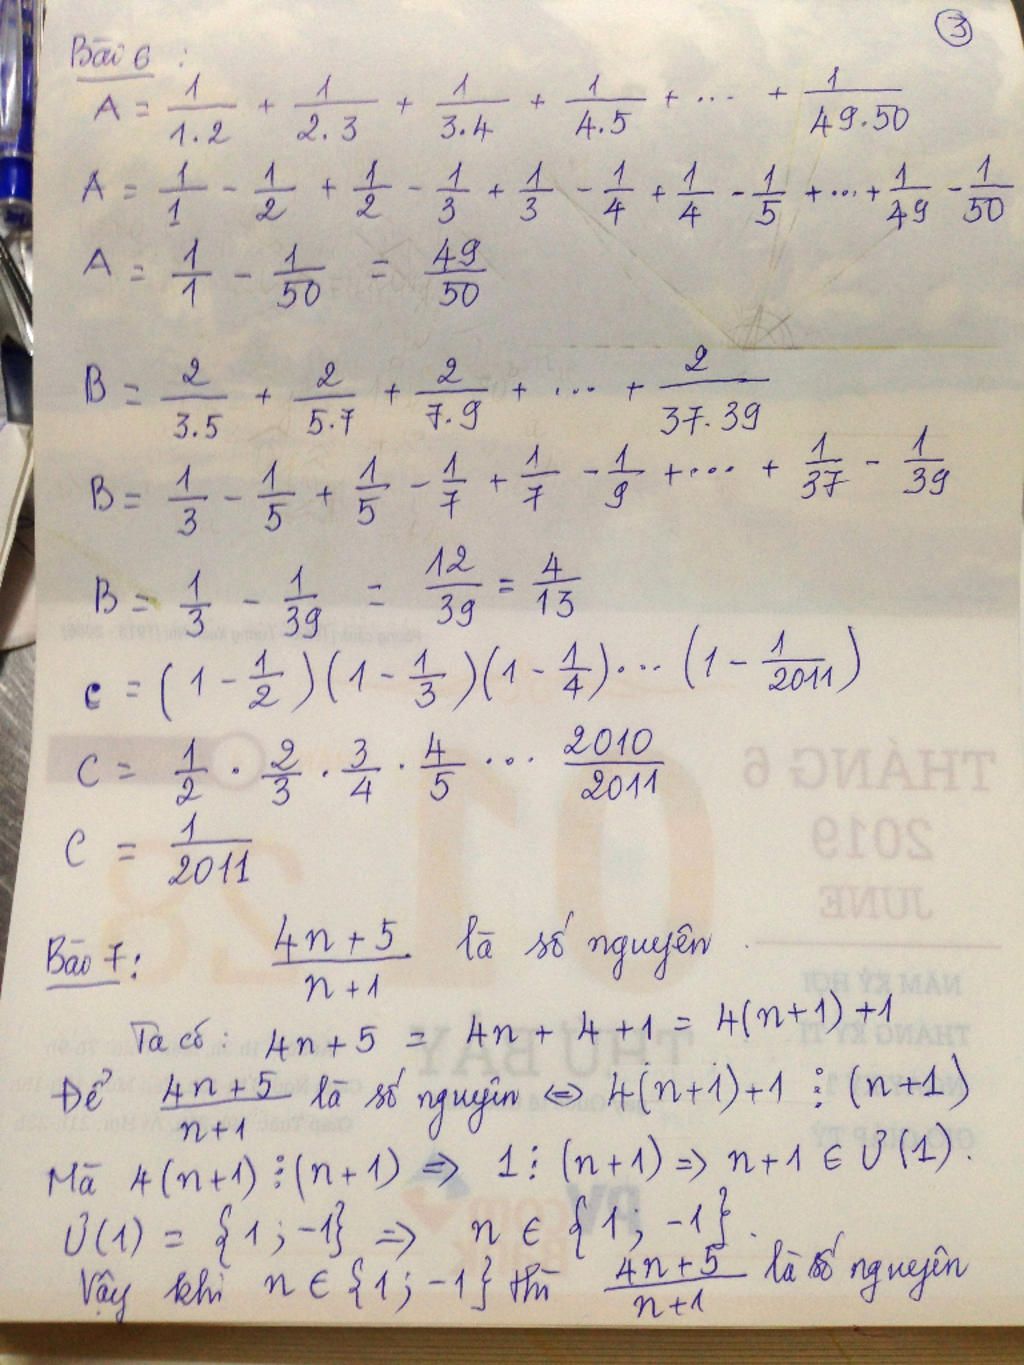 3
Bài 6 :
A = 1/1.2 + 1/2.3 + 1/3.4 + 1/4.5 + ... + 1/49.50
A = 1/1 - 1/2 + 1/2 - 1/3 + 1/3 - 1/4 + 1/4 - 1/5 + ... + 1/49 - 1/50
A = 1/1 - 1/50 = 49/50
B = 2/3.5 + 2/5.7 + 2/7.9 + ... + 2/37.39
B = 1/3 - 1/5 + 1/5 - 1/7 + 1/7 - 1/9 + ... + 1/37 - 1/39
B = 1/3 - 1/39 = 12/39 = 4/13
C = (1 - 1/2)(1 - 1/3)(1 - 1/4)...(1 - 1/2011)
C = 1/2 . 2/3 . 3/4 . 4/5 ... 2010/2011
C = 1/2011
Bài 7 : (4n+5)/(n+1) là số nguyên.
Ta có : 4n+5 = 4n + 4 + 1 = 4(n+1) + 1
Để (4n+5)/(n+1) là số nguyên ⇔ 4(n+1)+1 ⋮ (n+1)
Mà 4(n+1) ⋮ (n+1) ⇒ 1 ⋮ (n+1) ⇒ n+1 ∈ Ư(1).
Ư(1) = {1 ; -1} ⇒ n ∈ {1 ; -1}.
Vậy khi n ∈ {1 ; -1} thì (4n+5)/(n+1) là số nguyên
THÁNG 6
2019
JUNE
01
28
THỨ BẢY
NĂM KỶ HỢI